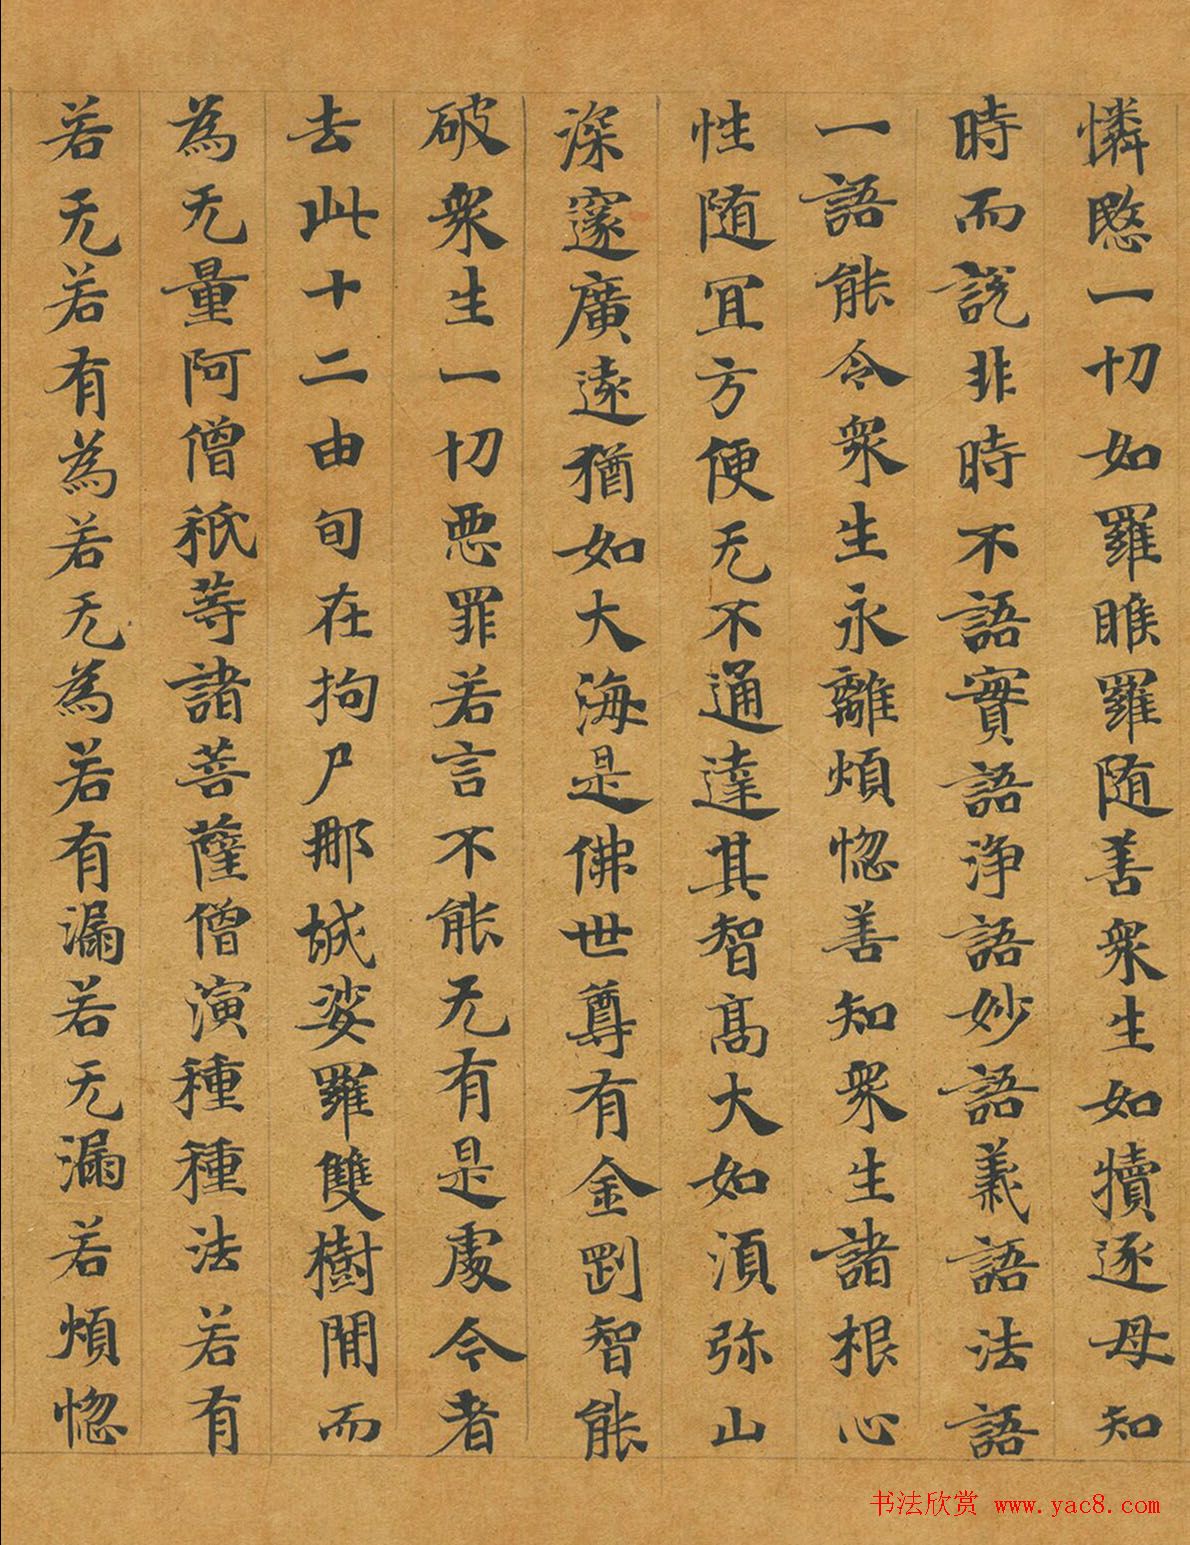 憐愍一切如羅睺羅随善衆生如犢逐母知
時而説非時不語實語浄語妙語義語法語
一語能令衆生永離煩惚善知衆生諸根心
性随宜方便无不通達其智髙大如湏弥山
深邃廣遠猶如大海是佛世尊有金剛智能
破衆生一切悪罪若言不能无有是處今者
去此十二由旬在拘尸那城娑羅雙樹間而
為无量阿僧秖等諸菩薩僧演種種法若有
若无若有為若无為若有漏若无漏若煩惚
书法欣赏 www.yac8.com